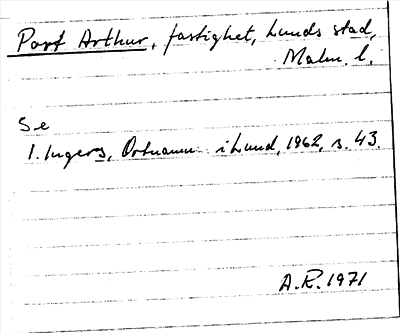 Port Arthur, fastighet, Lunds stad,
Malm. l.
Se
I. Ingers, Ortnamn i Lund, 1962, s. 43.
A.R. 1971